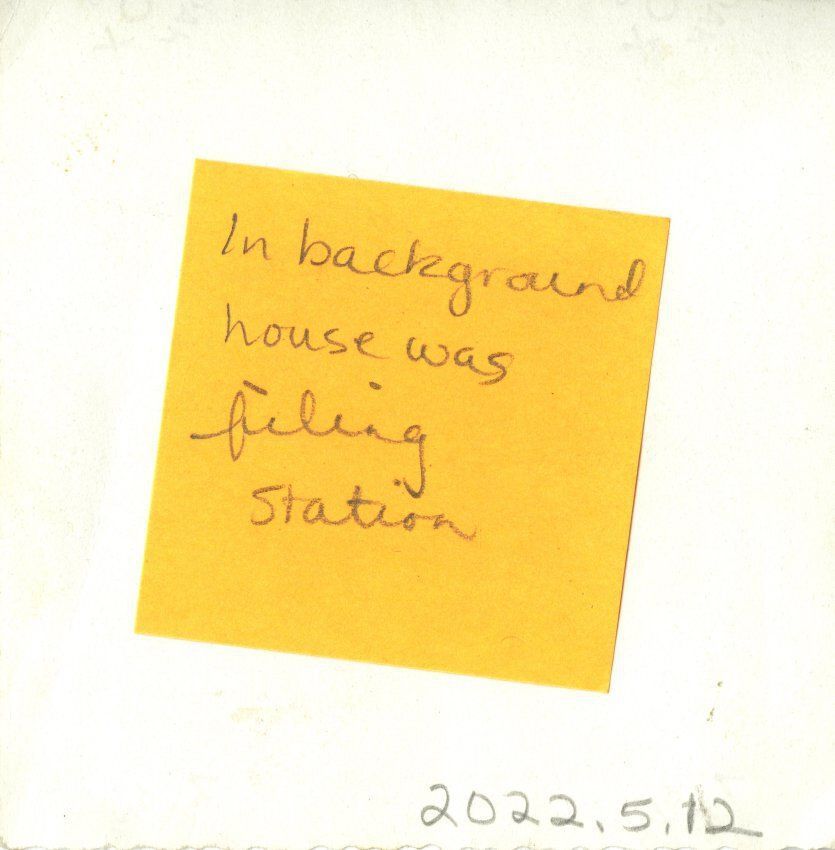 In background
house was
filing
station
2022.5.12